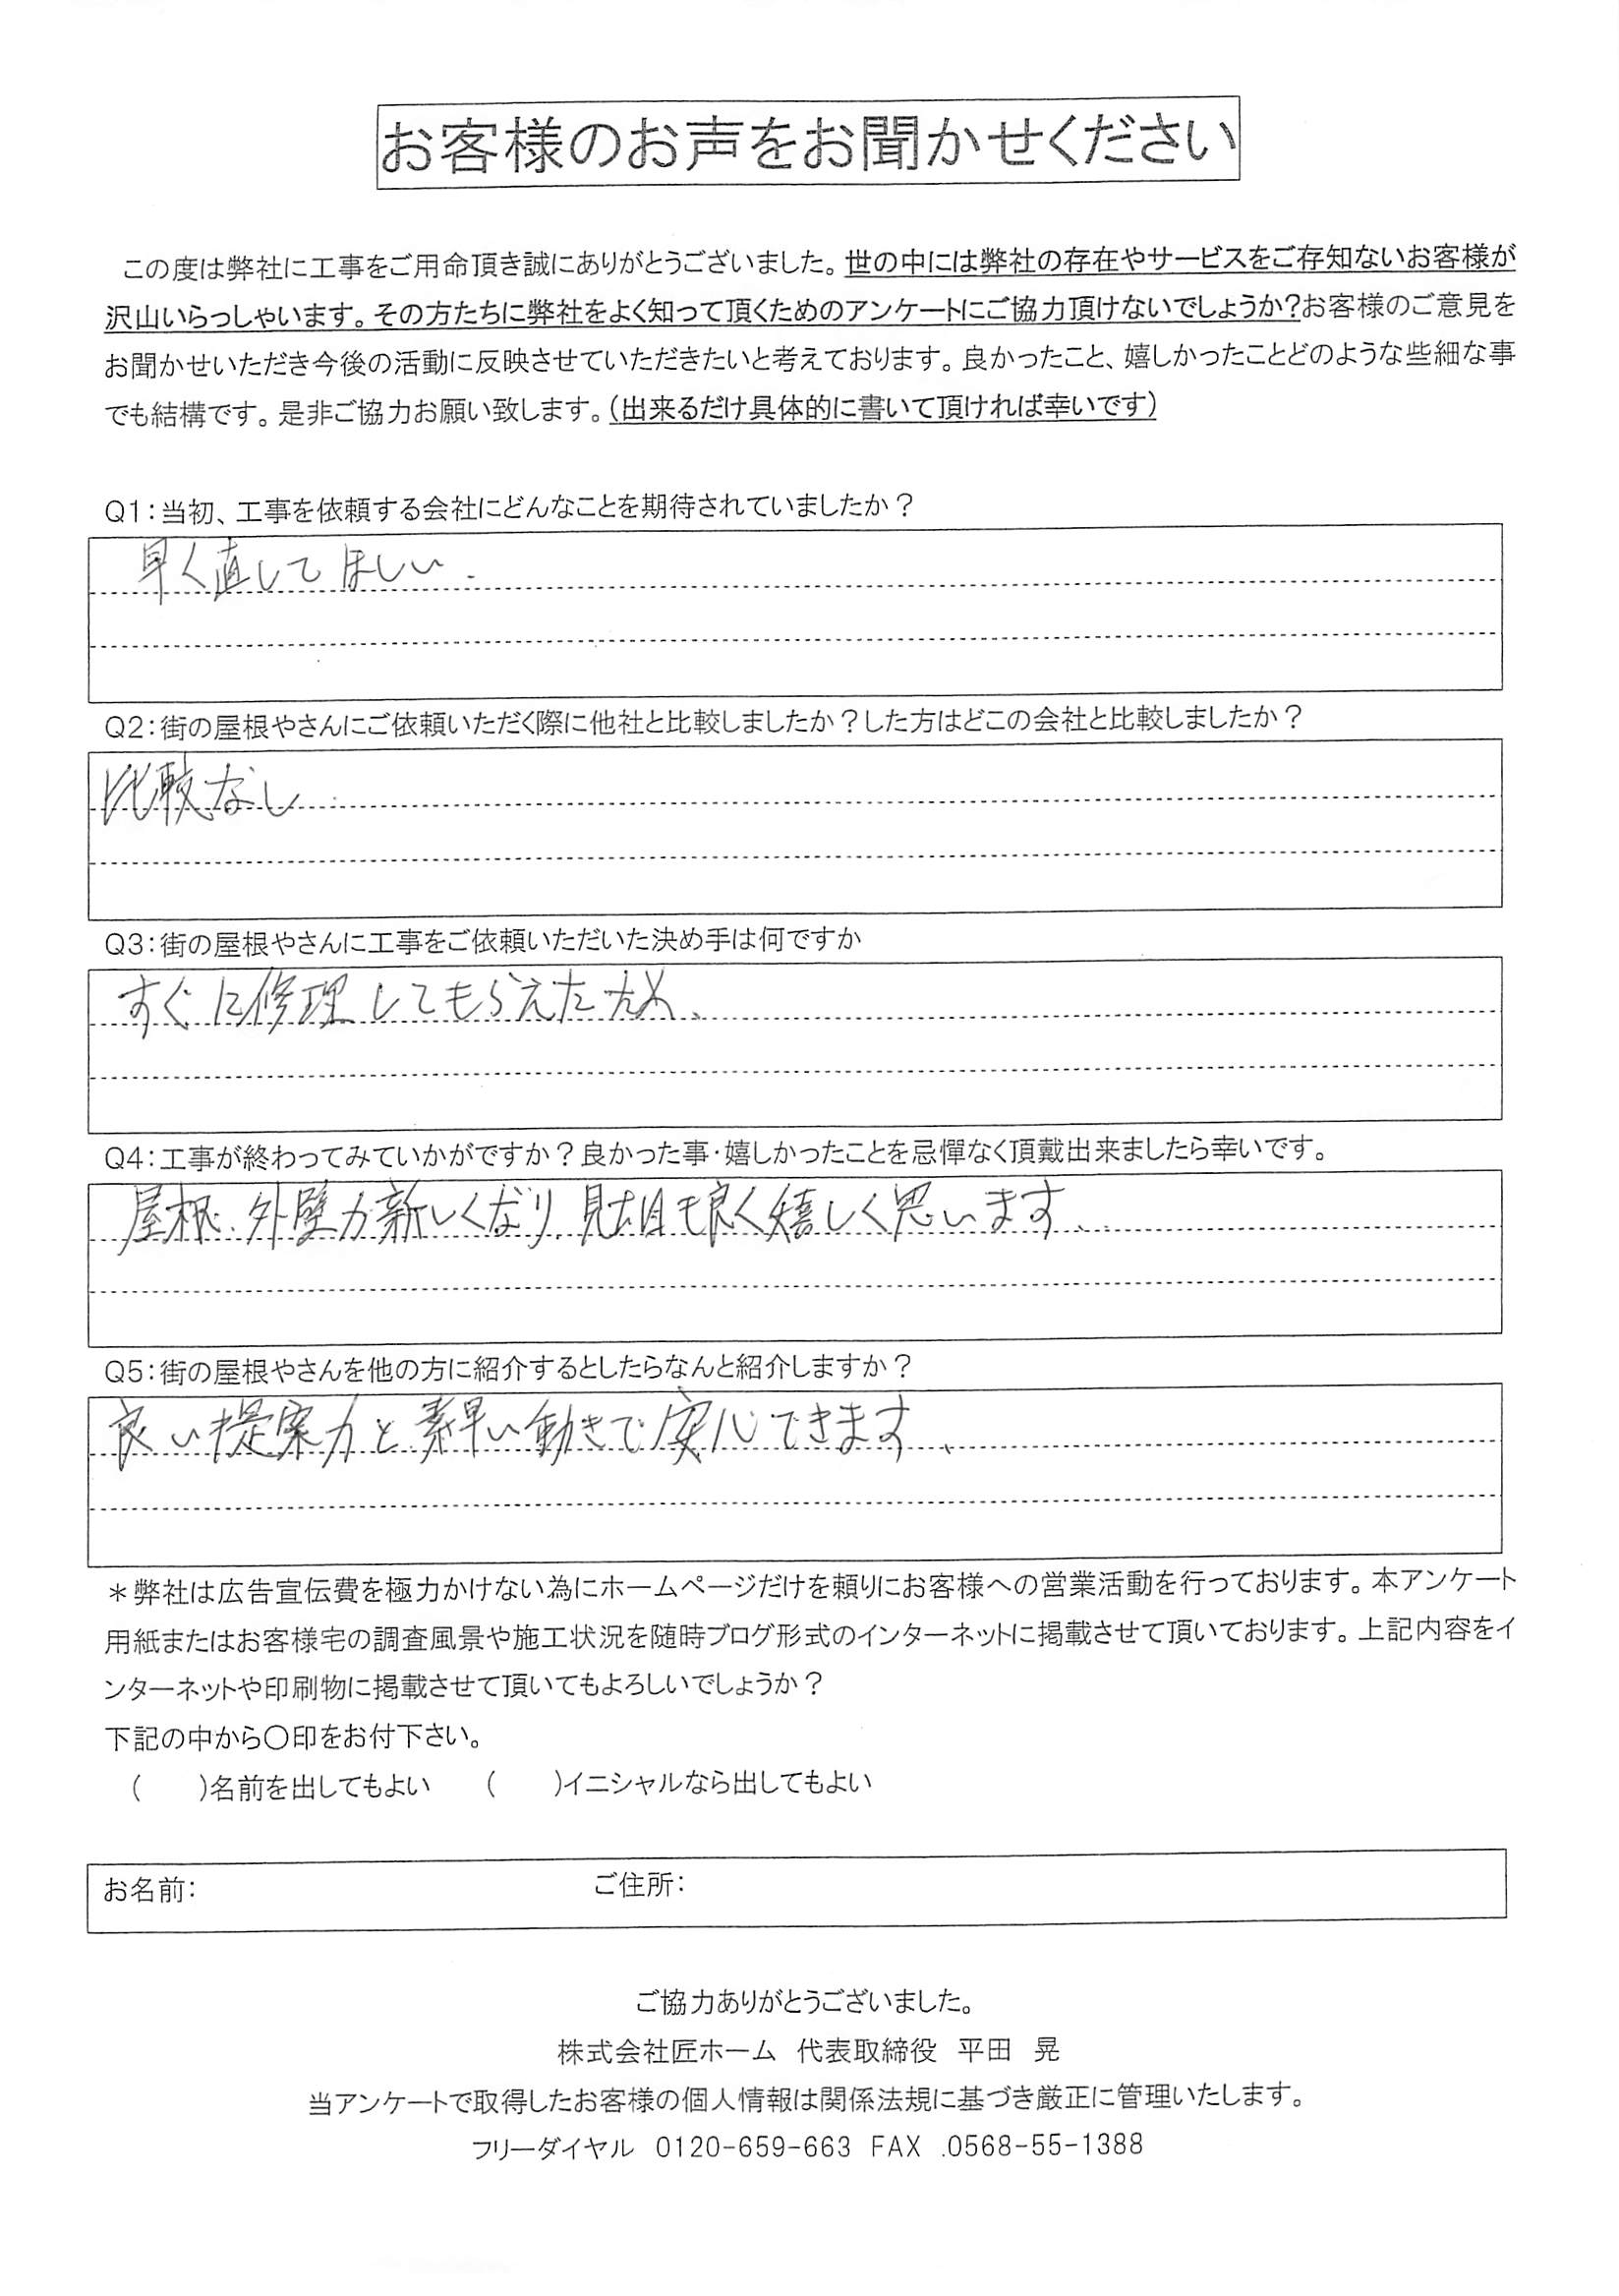 お客様のお声をお聞かせください
この度は弊社に工事をご用命頂き誠にありがとうございました。世の中には弊社の存在やサービスをご存知ないお客様が
沢山いらっしゃいます。その方たちに弊社をよく知って頂くためのアンケートにご協力頂けないでしょうか?お客様のご意見を
お聞かせいただき今後の活動に反映させていただきたいと考えております。良かったこと、嬉しかったことどのような些細な事
でも結構です。是非ご協力お願い致します。(出来るだけ具体的に書いて頂ければ幸いです)
Q1:当初、工事を依頼する会社にどんなことを期待されていましたか?
早く直してほしい.
Q2:街の屋根やさんにご依頼いただく際に他社と比較しましたか?した方はどこの会社と比較しましたか?
比較なし
Q3:街の屋根やさんに工事をご依頼いただいた決め手は何ですか
すぐに修理してもらえたため、
Q4:工事が終わってみていかがですか?良かった事・嬉しかったことを忌憚なく頂戴出来ましたら幸いです。
屋根、外壁が新しくなり、見た目も良く嬉しく思います、
Q5:街の屋根やさんを他の方に紹介するとしたらなんと紹介しますか?
良い提案力と素早い動きで安心できます、
*弊社は広告宣伝費を極力かけない為にホームページだけを頼りにお客様への営業活動を行っております。本アンケート
用紙またはお客様宅の調査風景や施工状況を随時ブログ形式のインターネットに掲載させて頂いております。上記内容をイ
ンターネットや印刷物に掲載させて頂いてもよろしいでしょうか?
下記の中から〇印をお付下さい。
(　　)名前を出してもよい　　(　　)イニシャルなら出してもよい
お名前:　　　ご住所:
ご協力ありがとうございました。
株式会社匠ホーム　代表取締役　平田　晃
当アンケートで取得したお客様の個人情報は関係法規に基づき厳正に管理いたします。
フリーダイヤル　0120-659-663 FAX .0568-55-1388